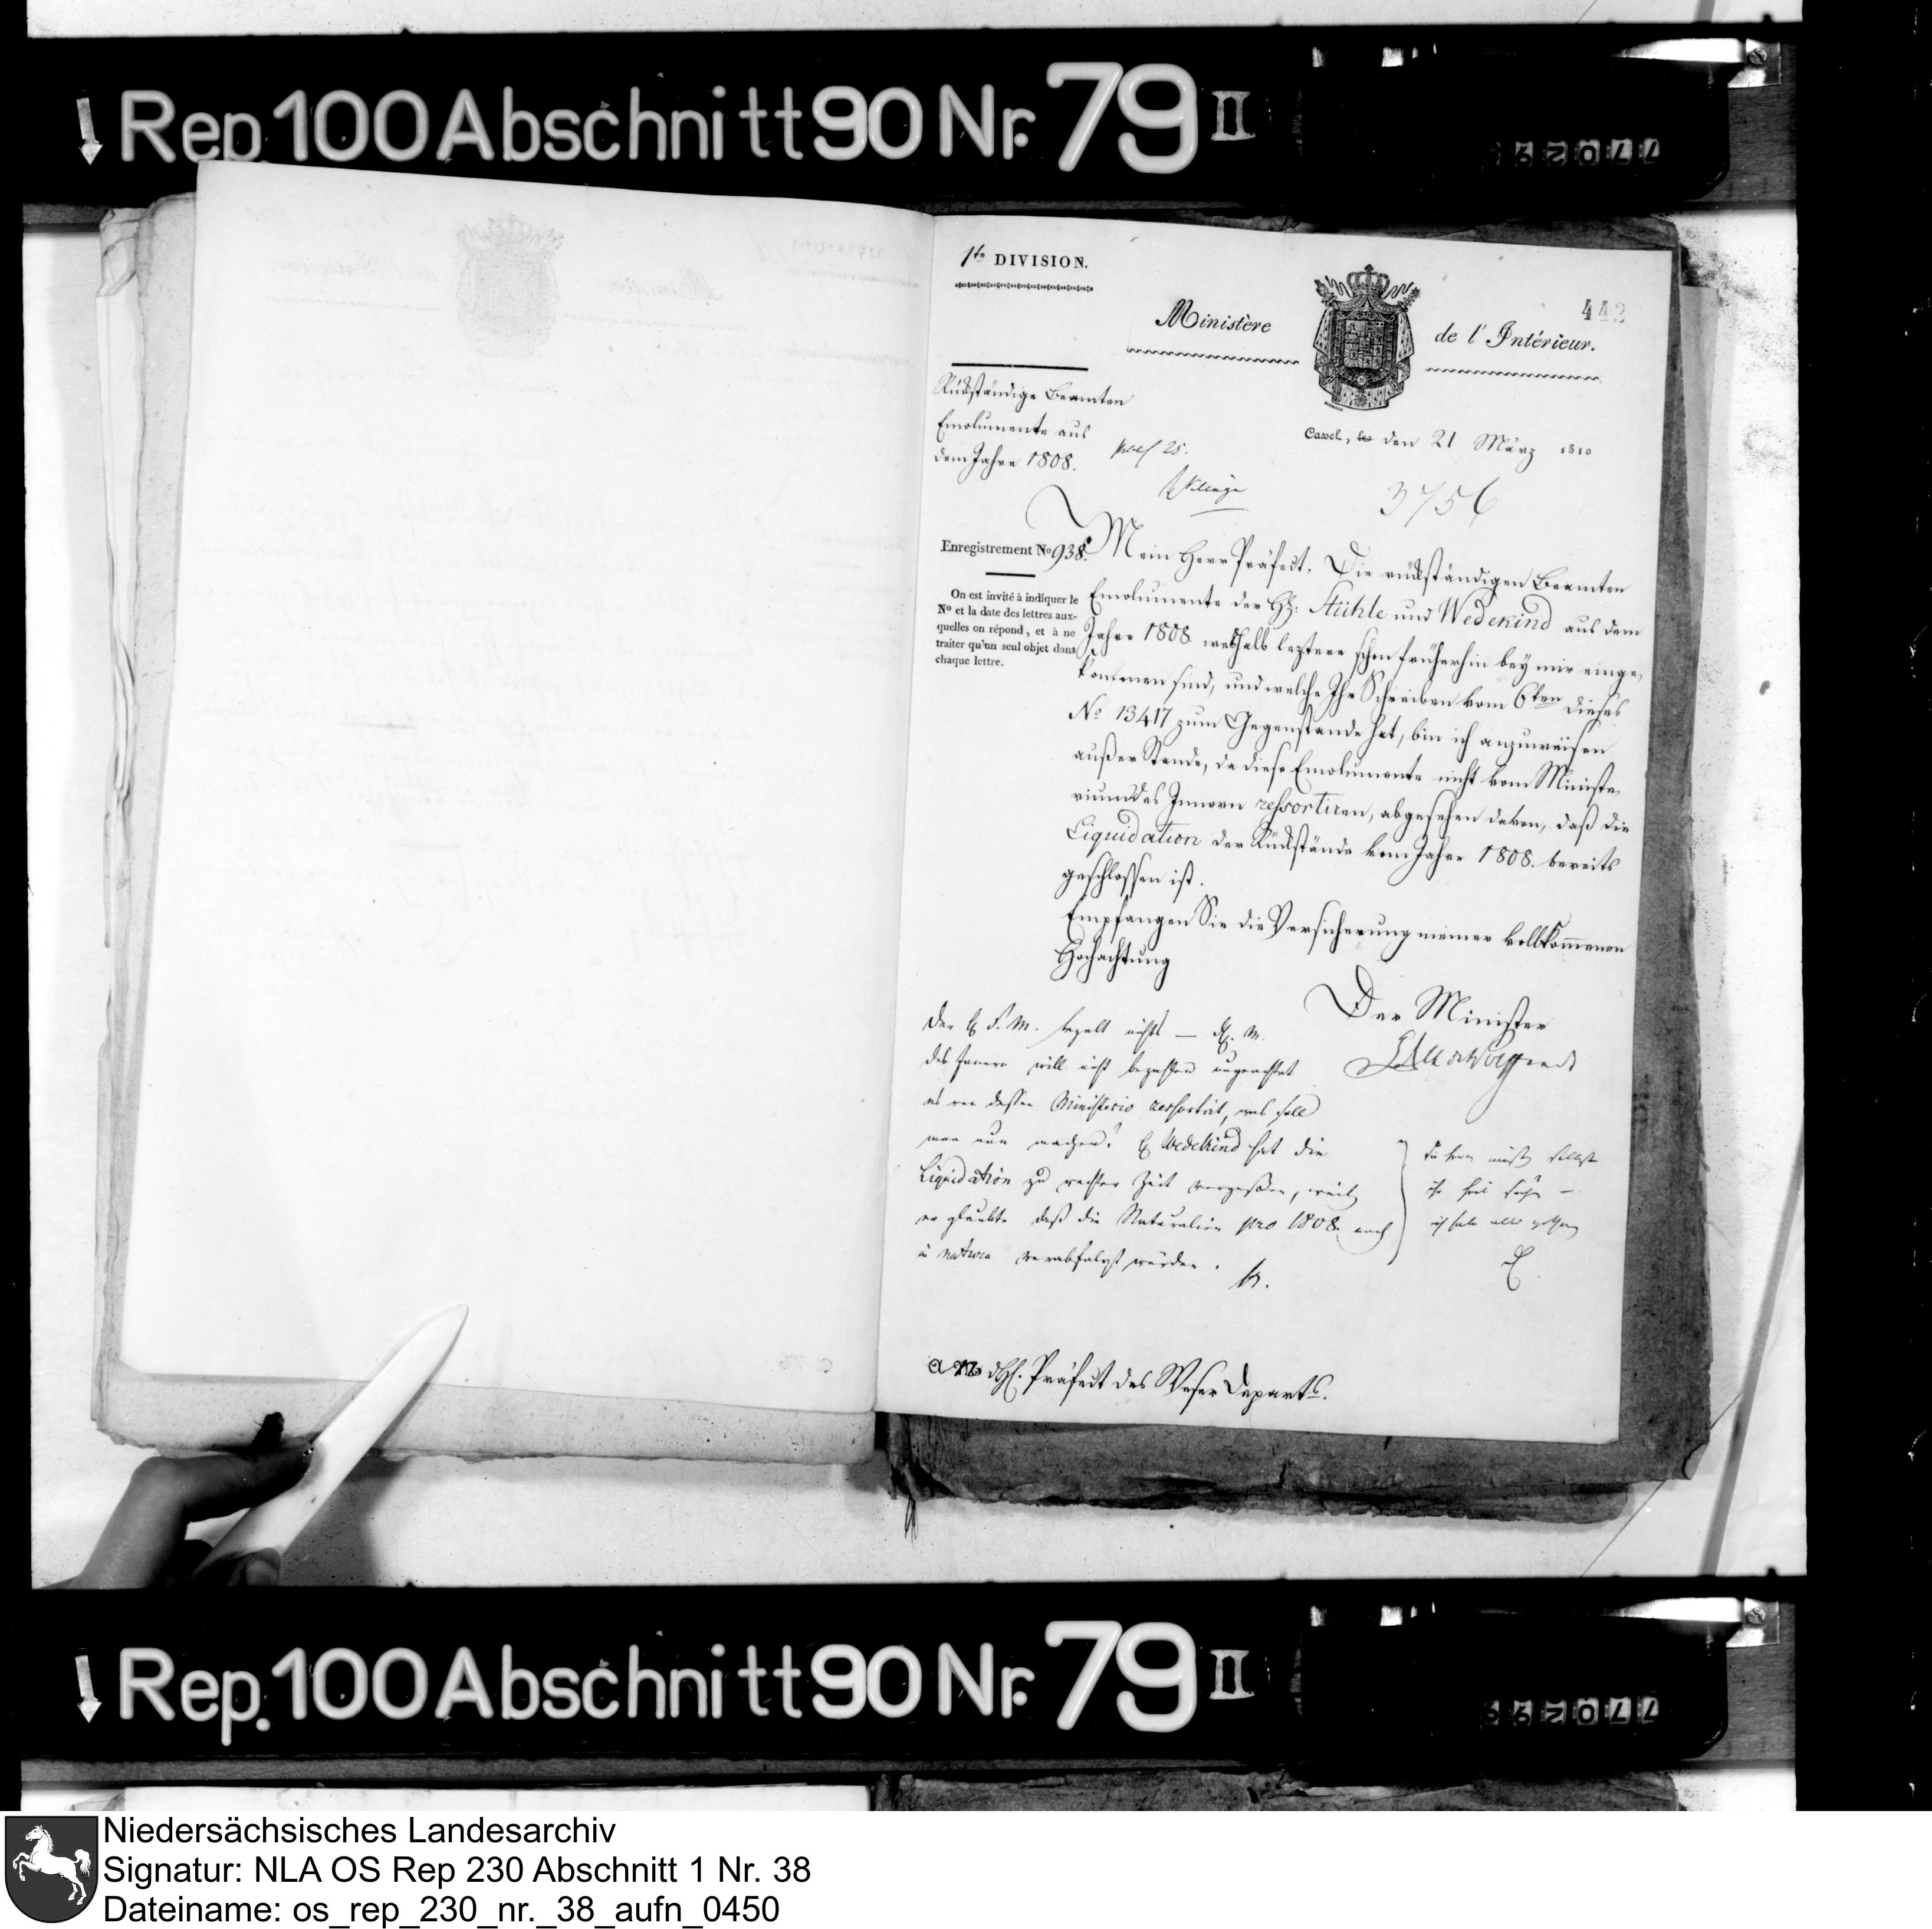 Rep. 100 Abschnitt 90 Nr. 79 II
1te DIVISION.
442
Ministère de l'Intérieur.
Rückständige Beamten
Emolumente aus
dem Jahre 1808.
Cassel, le den 21 März 1810
3756
Enregistrement No 938.
On est invité à indiquer le
No et la date des lettres aux-
quelles on répond, et à ne
traiter qu'un seul objet dans
chaque lettre.
Mein Herr Präfect. Die rückständigen Beamten
Emolumente der HH: Stühle und Wedekind aus dem
Jahre 1808 weshalb leztere schon früherhin bey mir einge-
kommen sind, und welche Ihr Schreiben vom 6ten dieses
No 13417 zum Gegenstande hat, bin ich anzuweisen
außer Stande, da diese Emolumente nicht vom Ministe-
rium des Innern ressortiren, abgesehen davon, daß die
Liquidation der Rückstände vom Jahre 1808. bereits
geschlossen ist.
Empfangen Sie die Versicherung meiner vollkommenen
Hochachtung
Der Minister
Der F. M. bezalt nichts — M.
des Innern will nicht bezahlen ungeachtet
es von dessen Ministerio ressortirt, was soll
man nun machen? Wedekind hat die
Liquidation zu rechter Zeit vergessen, weil
er glaubte daß die Naturalien pro 1808. noch
in natura verabfolgt würden.
an Präfect des Weser Departs.
Rep. 100 Abschnitt 90 Nr. 79 II
Niedersächsisches Landesarchiv
Signatur: NLA OS Rep 230 Abschnitt 1 Nr. 38
Dateiname: os_rep_230_nr._38_aufn_0450